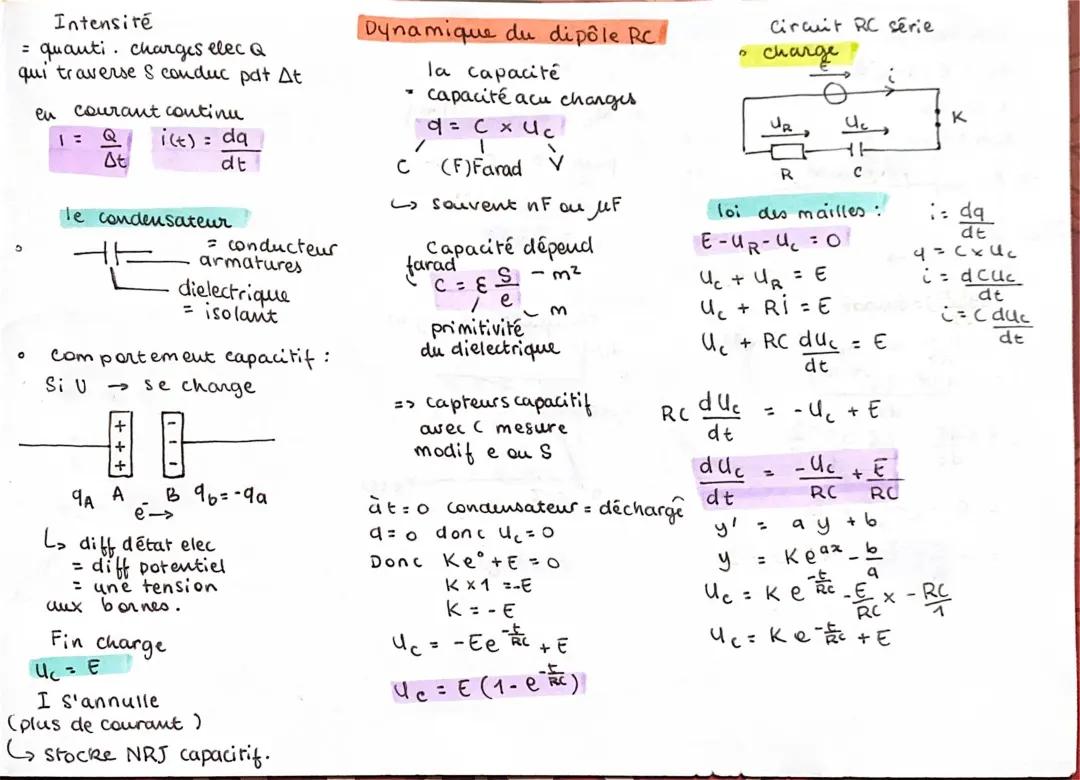 Intensité
= quanti. charges elec Q
qui traverse S conduc pdt Δt
en courant continu
I = Q/Δt i(t) = dq/dt
le condensateur
= conducteur
armatures
dielectrique
= isolant
• comportement capacitif :
Si U → se charge
+ -
+ -
+ -
qA A B qb=-qa
e⁻→
↳ diff détat elec
= diff potentiel
= une tension
aux bornes.
Fin charge
Uc = E
I s'annulle
(plus de courant)
↳ stocke NRJ capacitif.
Dynamique du dipôle RC
la capacité
= capacité acu charges
q = C × Uc
C (F)Farad V
↳ souvent nF ou μF
Capacité dépend
farad
C = ε S/e - m²
m
primitivité
du dielectrique
=> capteurs capacitif
avec C mesure
modif e ou S
à t=0 condensateur = déchargê
q=0 donc Uc=0
Donc Ke⁰ + E = 0
K×1 =-E
K = -E
Uc = -Ee^(-t/RC) + E
Uc = E (1-e^(-t/RC))
Circuit RC série
• charge
E i
K
UR Uc
R C
loi des mailles :
E-UR-Uc = 0
Uc + UR = E
Uc + Ri = E
Uc + RC dUc/dt = E
i = dq/dt
q = C×Uc
i = dCUc/dt
i = C dUc/dt
RC dUc/dt = -Uc + E
dUc/dt = -Uc/RC + E/RC
y' = ay + b
y = Ke^(ax) - b/a
Uc = Ke^(-t/RC) - E/RC × - RC/1
Uc = Ke^(-t/RC) + E